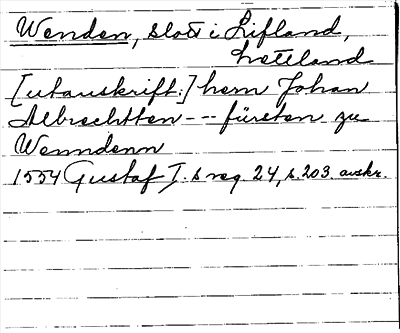 Wenden, slott i Lifland,
Lettland
[utanskrift:] hern Johan
Albrechtten --- fürsten zu
Wenndenn
1554 Gustaf I. s reg. 24, s. 203. avskr.